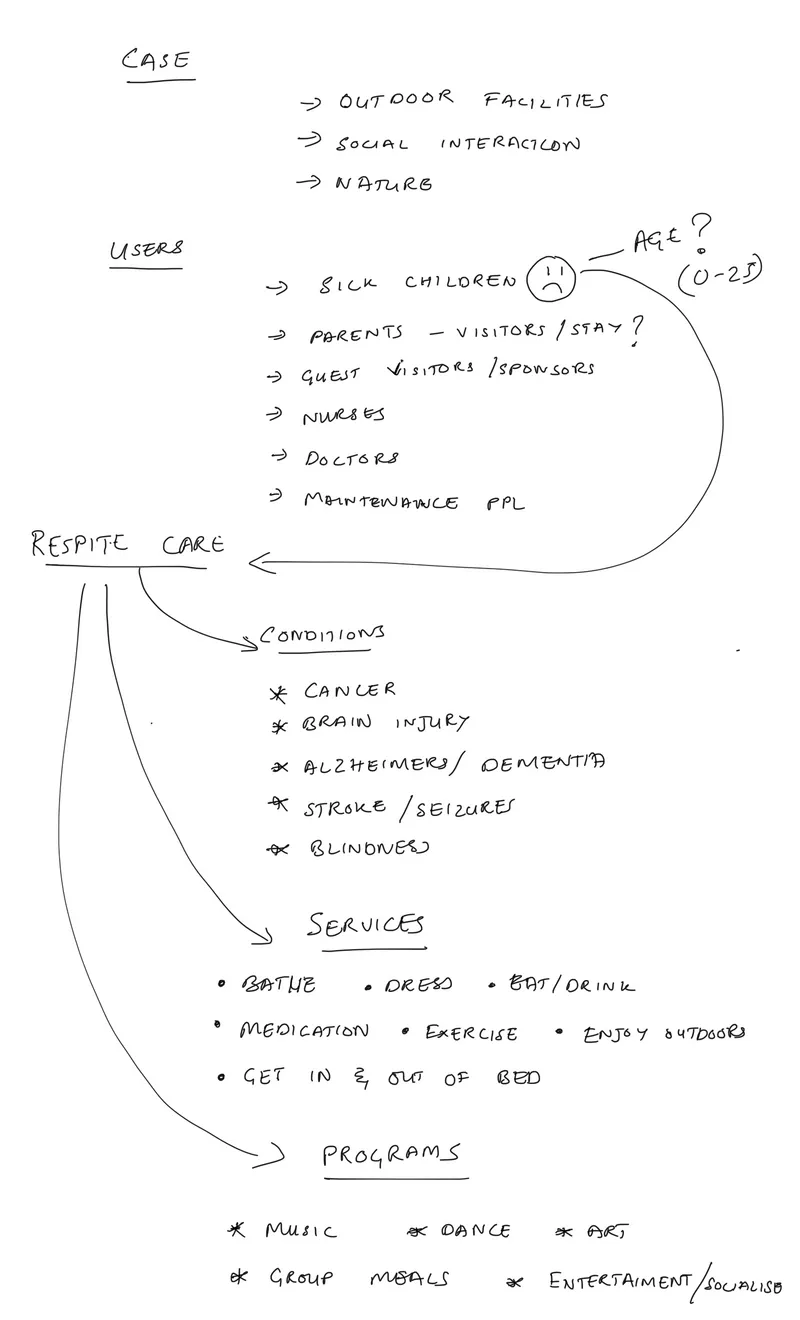 CASE
→ OUTDOOR FACILITIES
→ SOCIAL INTERACTION
→ NATURE
USERS
AGE?
(0-25)
→ SICK CHILDREN
→ PARENTS – VISITORS/STAY?
→ GUEST VISITORS/SPONSORS
→ NURSES
→ DOCTORS
→ MAINTENANCE PPL
RESPITE CARE
CONDITIONS
* CANCER
* BRAIN INJURY
* ALZHEIMERS/ DEMENTIA
* STROKE/SEIZURES
* BLINDNESS
SERVICES
• BATHE • DRESS • EAT/DRINK
• MEDICATION • EXERCISE • ENJOY OUTDOORS
• GET IN & OUT OF BED
PROGRAMS
* MUSIC * DANCE * ART
* GROUP MEALS * ENTERTAIMENT/SOCIALISE